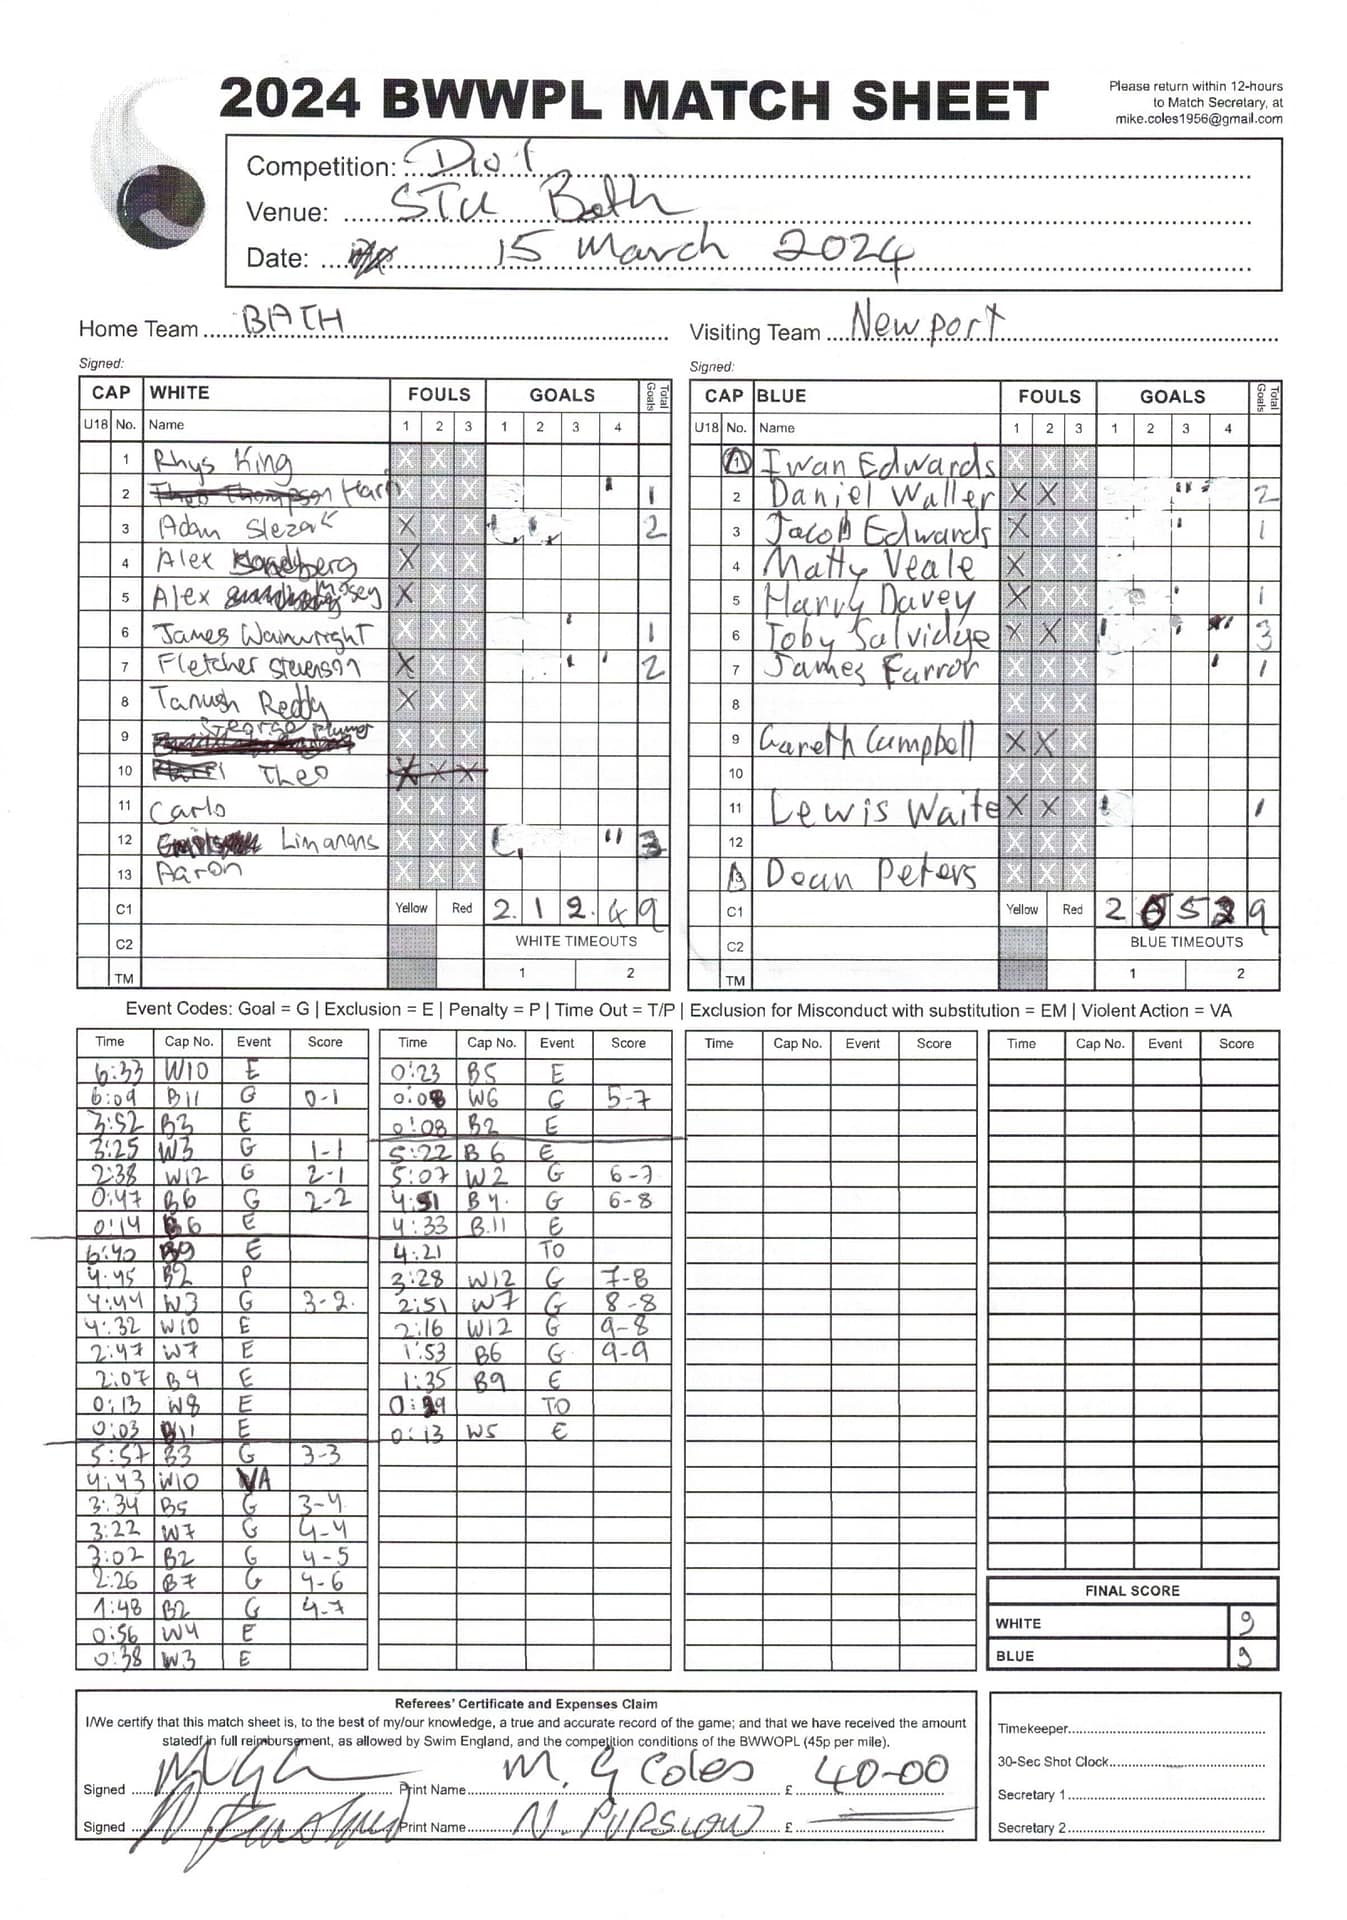 2024 BWWPL MATCH SHEET
Please return within 12-hours
to Match Secretary, at
mike.coles1956@gmail.com
Competition: Div 1
Venue: STU Bath
Date: 15 March 2024
Home Team BATH
Visiting Team Newport
Signed:
Signed:
CAP WHITE FOULS GOALS Total Goals
U18 No. Name 1 2 3 1 2 3 4
1 Rhys King
2 Harri 1
3 Adam Slezak X 2
4 Alex X
5 Alex Mosey X
6 James Wainwright 1
7 Fletcher Stevenson X 2
8 Tanush Reddy X
9 George Plumer
10 Theo X X X
11 Carlo
12 Limanans 3
13 Aaron
C1 Yellow Red 2 1 2 4 9
C2 WHITE TIMEOUTS
TM 1 2
CAP BLUE FOULS GOALS Total Goals
U18 No. Name 1 2 3 1 2 3 4
1 Iwan Edwards
2 Daniel Waller X X 2
3 Jacob Edwards X 1
4 Matty Veale X
5 Harry Davey X 1
6 Toby Salvidge X X 3
7 James Farror 1
8
9 Gareth Campbell X X
10
11 Lewis Waite X X 1
12
13 Dean Peters
C1 Yellow Red 2 0 5 2 9
C2 BLUE TIMEOUTS
TM 1 2
Event Codes: Goal = G | Exclusion = E | Penalty = P | Time Out = T/P | Exclusion for Misconduct with substitution = EM | Violent Action = VA
Time Cap No. Event Score
6:33 W10 E
6:09 B11 G 0-1
3:52 B3 E
3:25 W3 G 1-1
2:38 W12 G 2-1
0:47 B6 G 2-2
0:14 B6 E
6:40 B9 E
4:45 B2 P
4:44 W3 G 3-2
4:32 W10 E
2:47 W7 E
2:07 B4 E
0:13 W8 E
0:03 B11 E
5:57 B3 G 3-3
4:43 W10 VA
3:34 B5 G 3-4
3:22 W7 G 4-4
3:02 B2 G 4-5
2:26 B7 G 4-6
1:48 B2 G 4-7
0:56 W4 E
0:38 W3 E
Time Cap No. Event Score
0:23 B5 E
0:08 W6 G 5-7
0:08 B2 E
5:22 B6 E
5:07 W2 G 6-7
4:51 B4 G 6-8
4:33 B11 E
4:21 TO
3:28 W12 G 7-8
2:51 W7 G 8-8
2:16 W12 G 9-8
1:53 B6 G 9-9
1:35 B9 E
TO
0:13 W5 E
Time Cap No. Event Score
Time Cap No. Event Score
FINAL SCORE
WHITE 9
BLUE 9
Referees' Certificate and Expenses Claim
I/We certify that this match sheet is, to the best of my/our knowledge, a true and accurate record of the game; and that we have received the amount
statedf in full reimbursement, as allowed by Swim England, and the competition conditions of the BWWOPL (45p per mile).
Signed Print Name M. G Coles £ 40-00
Signed Print Name N. PURSLOW £
Timekeeper
30-Sec Shot Clock
Secretary 1
Secretary 2